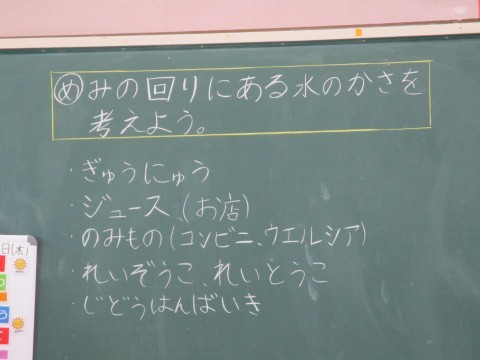 めみの回りにある水のかさを
考えよう。
・ぎゅうにゅう
・ジュース(お店)
・のみもの(コンビニ、ウエルシア)
・れいぞうこ、れいとうこ
・じどうはんばいき
日(木)